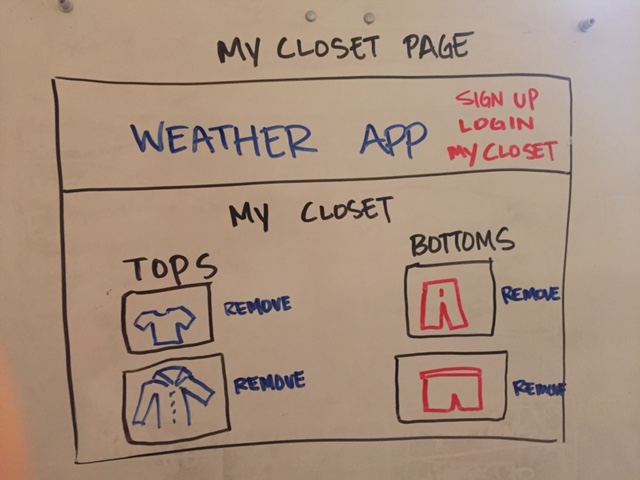 MY CLOSET PAGE
WEATHER APP
SIGN UP
LOGIN
MY CLOSET
MY CLOSET
TOPS
REMOVE
REMOVE
BOTTOMS
REMOVE
REMOVE